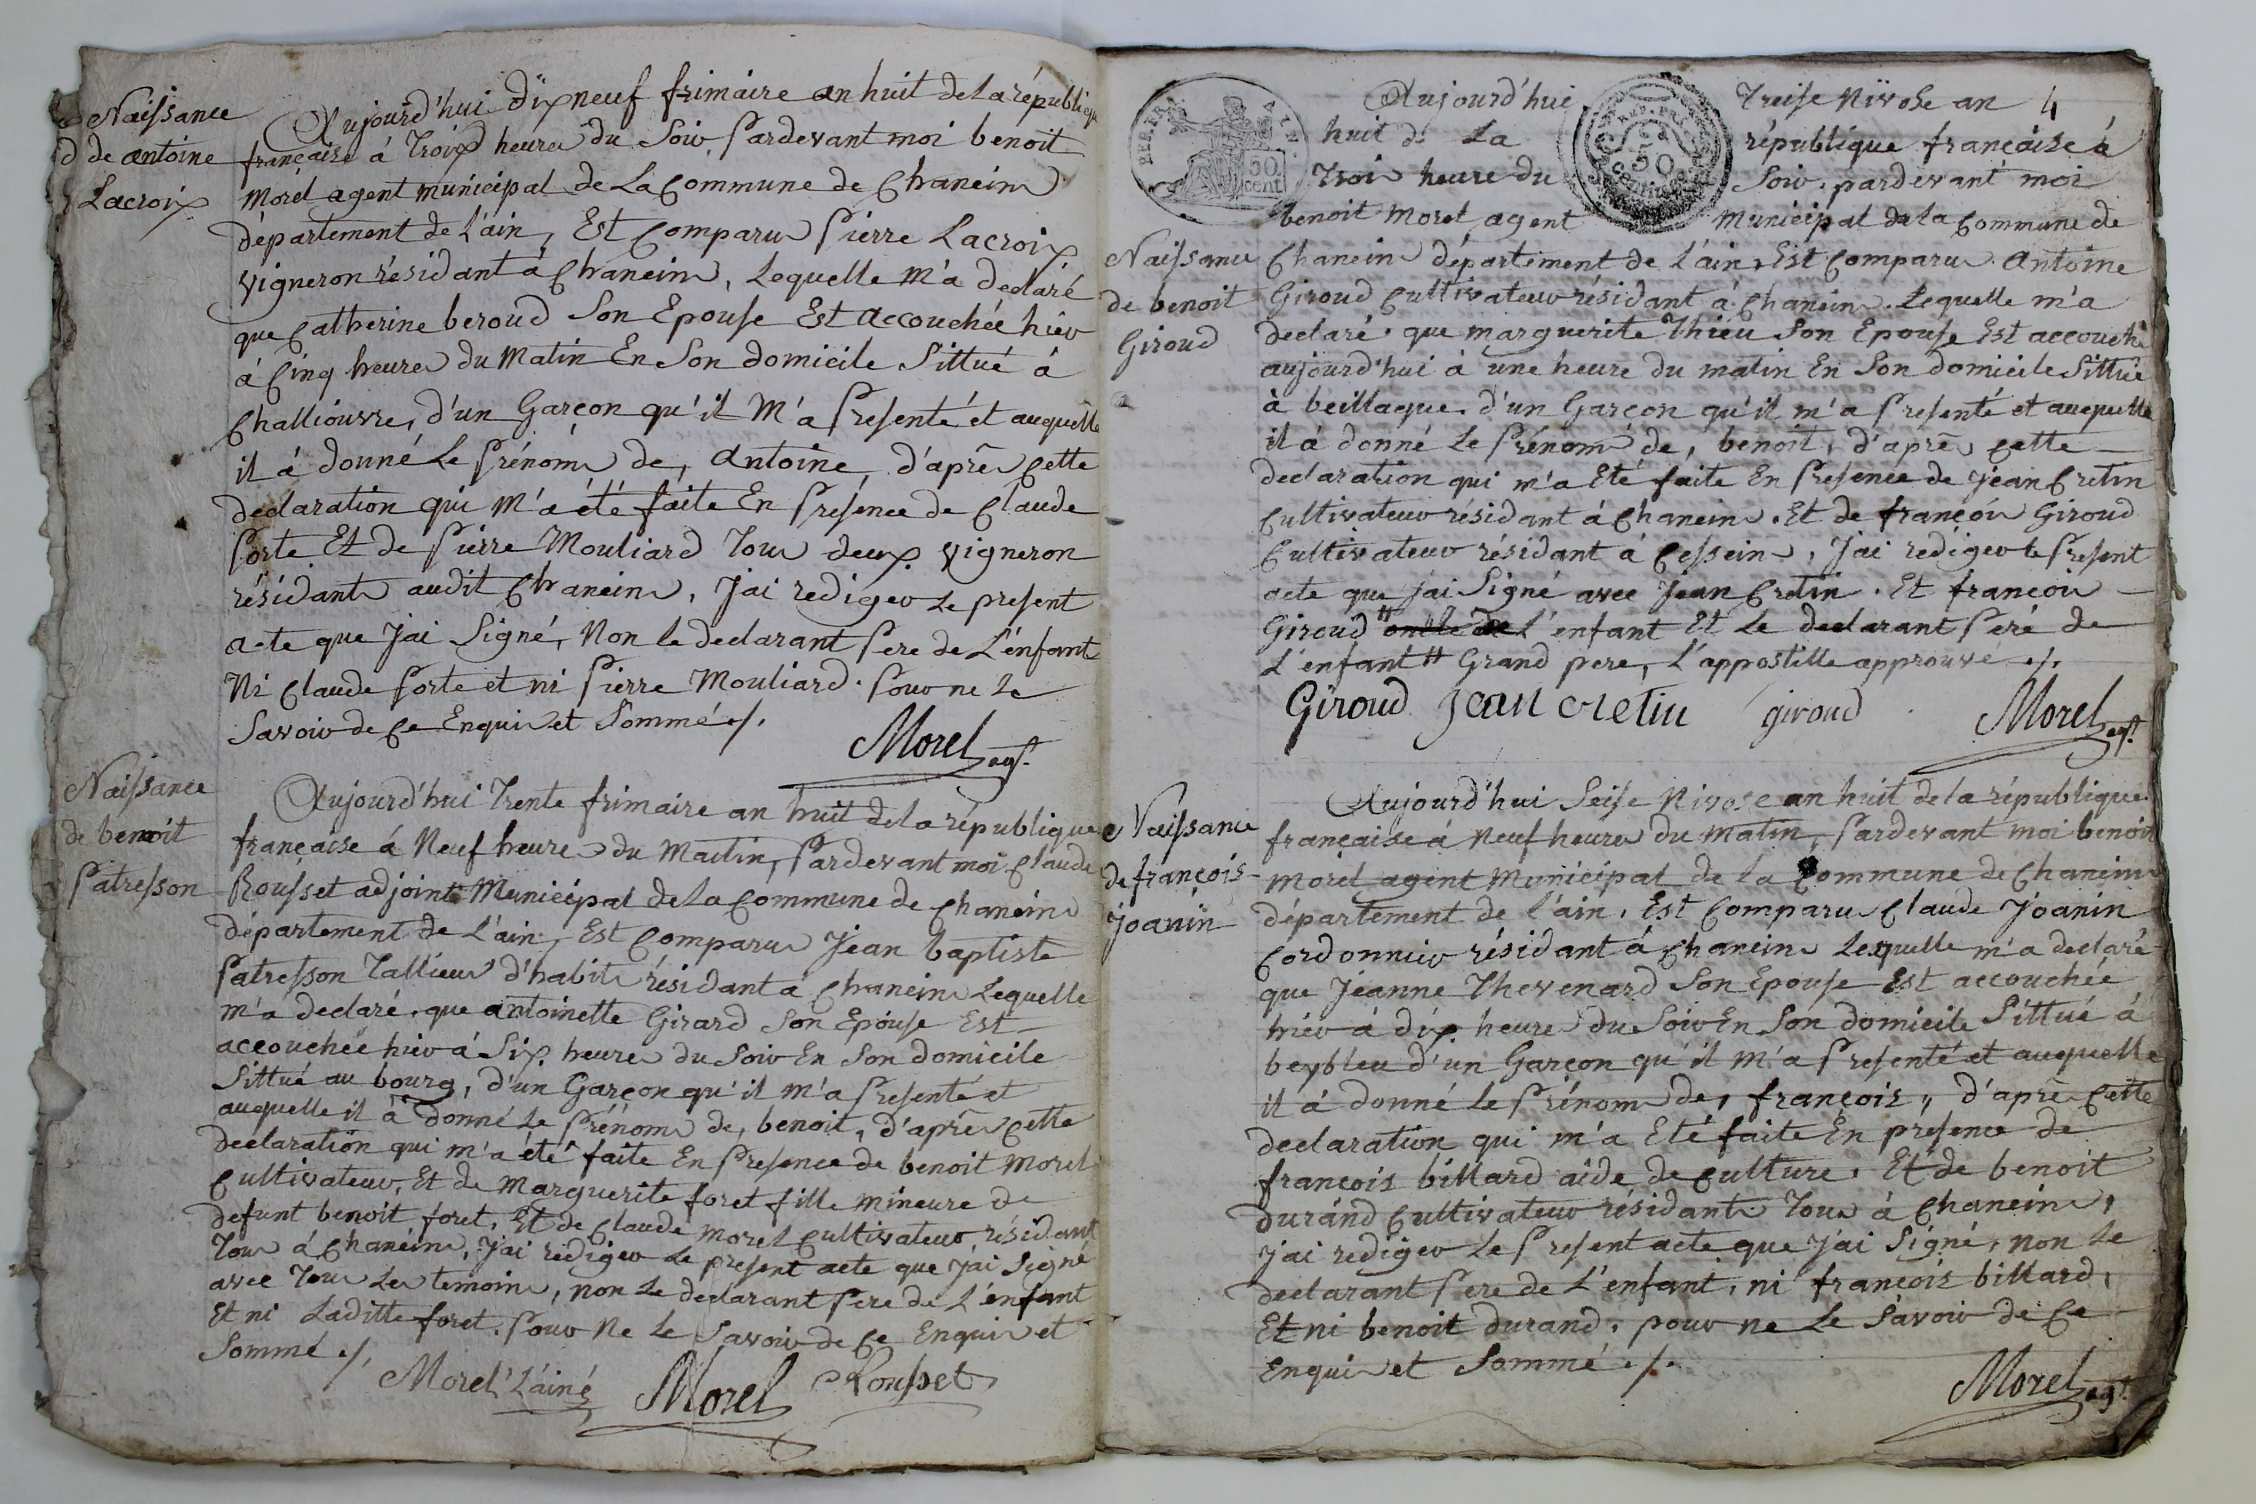 Naissance
de antoine
Lacroix
Aujourd'hui Dixneuf frimaire an huit de la républiq
française á Troix heure du Soir Pardevant moi benoit
Morel agent municipal de La Commune de Chanein
département de L'ain, Est Comparu Pierre Lacroix
vigneron résidant á Chanein, Lequelle M'a declaré
que Catherine beroud Son Epouse Est accouchée hier
á Cinq heure du Matin En Son domicile Sittué á
Challiouvre, d'un Garçon qu'il M'a Presenté et auquelle
il á donné Le Prénom de, antoine, d'après Cette
declaration qui M'a été faite En Présence de Claude
Porte Et de Pierre Mouliard Tous deux vigneron
résidants audit Chanein, J'ai rediger Le present
acte que J'ai Signé, Non le declarant Pere de L'énfant
Ni Claude Porte et ni Pierre Mouliard. Pour ne Le
Savoir de Ce Enquis et Sommé ./.
Morel agt.
Naissance
de benoit
Patresson
Aujourd'hui Trente frimaire an huit de la république
française á Neuf heure du Matin, Pardevant moi Claude
Rousset adjoint Municipal de La Commune de Chanein
département de L'ain, Est Comparu Jean baptiste
Patresson Tallieur d'habits résidant á Chanein Lequelle
m'a declaré, que antoinette Girard Son Epouse Est
accouchée hier á Six heure du Soir En Son domicile
Sittué au bourg, d'un Garçon qu'il m'a Presenté et
auquelle il á donné Le Prénom de, benoit, d'après Cette
declaration qui m'a été faite En Presence de benoit Morel
Cultivateur, Et de Marguerite foret fille mineure de
defunt benoit foret, Et de Claude Morel Cultivateur résidant
Tous á Chanein, J'ai rediger Le present acte que J'ai Signé
avec Tous Les temoins, non Le declarant Pere de L'énfant
Et ni Laditte foret. Pour Ne Le Savoir de Ce Enquis et
Sommé ./.
Morel L'ainé Morel Rousset
REP.FRA
50
cent.
50
4
Aujourd'hui Treise Nivose an
huit de La république française á
Trois heure du Soir, pardevant moi
benoit Morel agent Municipal de la Commune de
Naissance
de benoit
Giroud
Chanein département de L'ain, Est Comparu Antoine
Giroud Cultivateur résidant á Chanein. Lequelle m'a
declaré. que marguerite Thieu Son Epouse Est accouché
aujourd'hui á une heure du matin En Son domicile Sittué
à beillaque. d'un Garçon qu'il m'a Presenté et auquelle
il á donné Le Prénom de, benoit, d'après Cette
declaration qui m'a Eté faite En Presence de Jean Cretin
Cultivateur résidant á Chanein. Et de françois Giroud
Cultivateur résidant á Cessein, J'ai rediger le Present
acte que J'ai Signé avec Jean Cretin. Et françois
Giroud # oncle de L'enfant Et Le declarant Peré de
L'enfant # Grand pere, L'appostille approuve ./.
Giroud Jean cretin giroud Morel agt.
Naissance
de françois
Joanin
Aujourd'hui Seise Nivose an huit de la république
française á Neuf heure du Matin, Pardevant moi benoit
Morel agent Municipal de La Commune de Chanein
département de l'ain, Est Comparu Claude Joanin
Cordonnier résidant á Chanein Lequelle m'a declaré
que Jéanne Thevenard Son Epouse Est accouchée
hiér á dix heure du Soir En Son domicile Sittué á
beybleu d'un Garçon qu'il M'a Presenté et auquelle
il á donné Le Prénom de, françois,, d'après Cette
declaration qui m'a Eté faite En presence de
françois billard aide de Culture. Et de benoit
durand Cultivateur résidants Tous á Chanein,
J'ai rediger Le Present acte que J'ai Signé, non Le
declarant Pere de L'enfant, ni françois billard,
Et ni benoit durand. pour ne Le Savoir de Ce
Enquis et Sommé ./.
Morel agt.